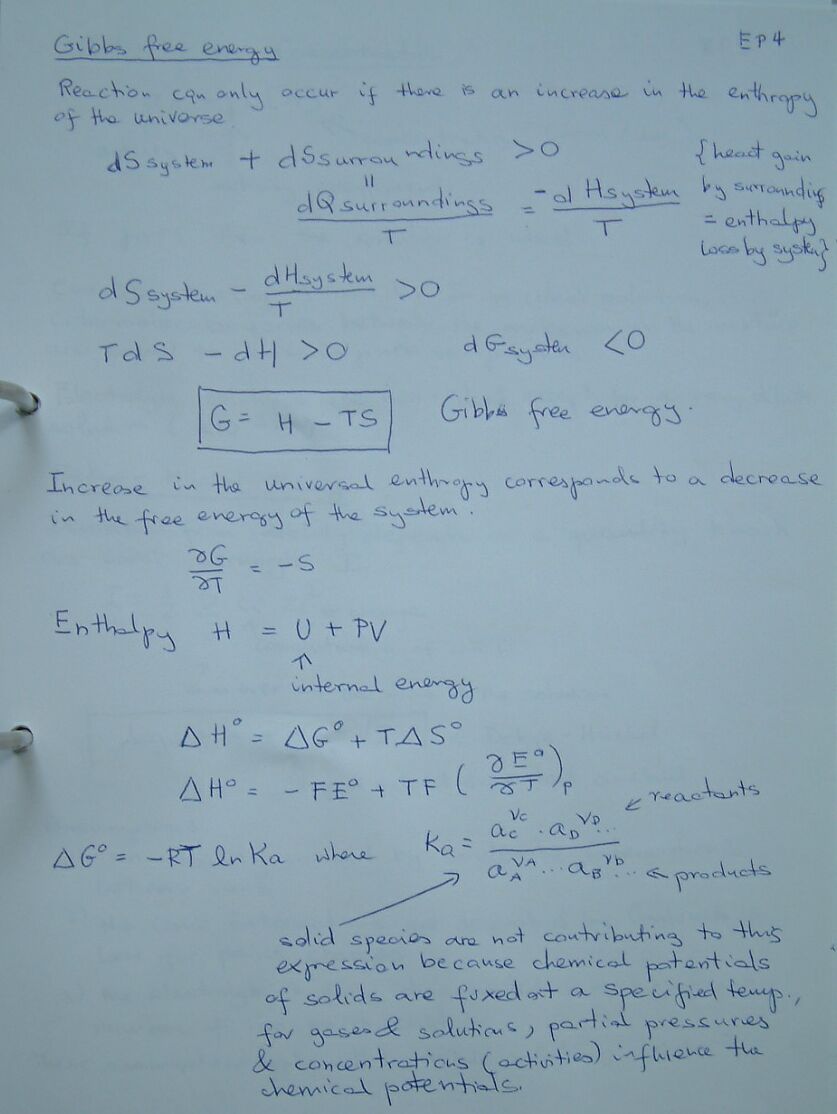 Gibbs free energy
EP4
Reaction can only occur if there is an increase in the enthropy
of the universe
dSsystem + dSsurroundings >0
{heact gain
by surrounding
= enthalpy
loss by system}
=
dQsurroundings / T = -dHsystem / T
dSsystem - dHsystem / T >0
TdS - dH >0
dGsystem <0
G = H - TS
Gibbs free energy.
Increase in the universal enthropy corresponds to a decrease
in the free energy of the system.
∂G/∂T = -S
Enthalpy H = U + PV
↑
internal energy
ΔH° = ΔG° + TΔS°
ΔH° = - FE° + TF (∂E°/∂T)p
← reactants
ΔG° = -RT ln Ka where Ka = aC^νC . aD^νD... / aA^νA ... aB^νb...
← products
solid species are not contributing to this
expression because chemical potentials
of solids are fixed at a specified temp.,
for gases & solutions, partial pressures
& concentrations (activities) influence the
chemical potentials.